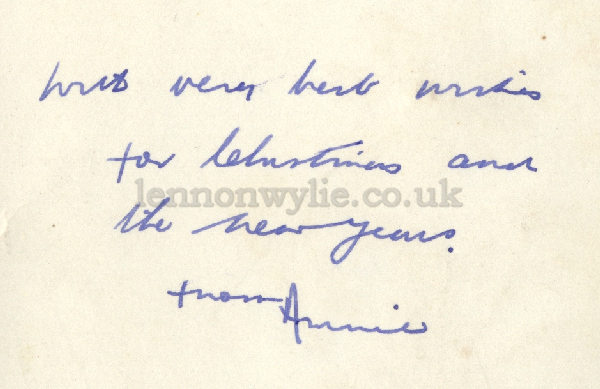 with very best wishes
for Christmas and
lennonwylie.co.uk
the new years.
from Annie